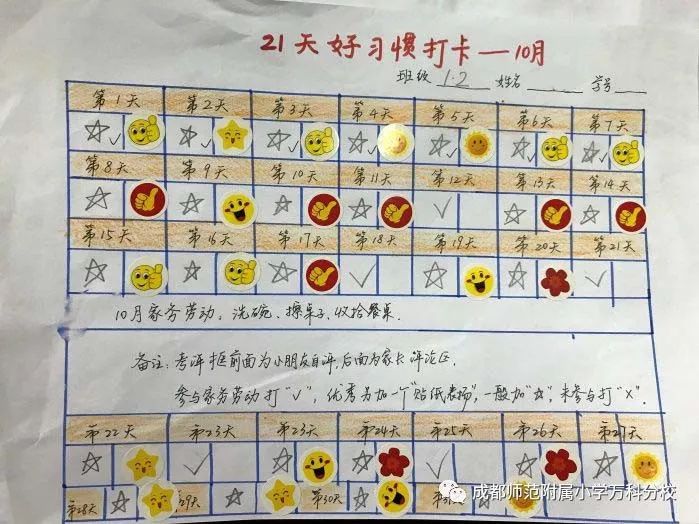 21天好习惯打卡—10月
班级 1.2 姓名 学号
第1天 第2天 第3天 第4天 第5天 第6天 第7天
第8天 第9天 第10天 第11天 第12天 第13天 第14天
第15天 第16天 第17天 第18天 第19天 第20天 第21天
10月家务劳动：洗碗、擦桌子、收拾餐桌.
备注：考评框前面为小朋友自评，后面为家长评论区.
参与家务劳动打“√”，优秀另加一个“贴纸表扬”，一般加“☆”，未参与打“×”.
第22天 第23天 第23天 第24天 第25天 第26天 第27天
第28天 29天 第30天
成都师范附属小学万科分校